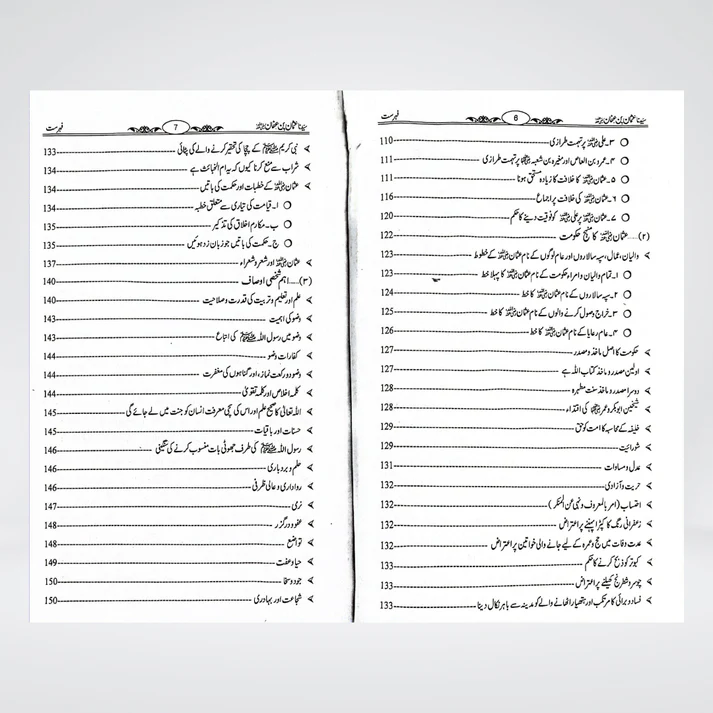 سیدنا عثمان بن عفان رضی اللہ عنہ 6 فہرست
۳۔ علی رضی اللہ عنہ پر تہمت طرازی 110
۴۔ عمرو بن العاص اور مغیرہ بن شعبہ رضی اللہ عنہما پر تہمت طرازی 111
۵۔ عثمان رضی اللہ عنہ کا خلافت کا زیادہ مستحق ہونا 111
۶۔ عثمان رضی اللہ عنہ کی خلافت پر اجماع 116
۷۔ عثمان رضی اللہ عنہ پر علی رضی اللہ عنہ کو فوقیت دینے کا حکم 120
(۲)..... عثمان رضی اللہ عنہ کا منہج حکومت 122
والیان، عمال، سپہ سالاروں اور عام لوگوں کے نام عثمان رضی اللہ عنہ کے خطوط 123
۱۔ تمام والیان و امراء حکومت کے نام عثمان رضی اللہ عنہ کا پہلا خط 123
۲۔ سپہ سالاروں کے نام عثمان رضی اللہ عنہ کا خط 124
۳۔ خراج وصول کرنے والوں کے نام عثمان رضی اللہ عنہ کا خط 125
۴۔ عام رعایا کے نام عثمان رضی اللہ عنہ کا خط 126
حکومت کا اصل ماخذ و مصدر 127
اولین مصدر و ماخذ کتاب اللہ ہے 127
دوسرا مصدر و ماخذ سنت مطہرہ 128
شیخین ابوبکر و عمر رضی اللہ عنہما کی اقتداء 128
خلیفہ کے محاسبہ کا امت کو حق 129
شورائیت 129
عدل و مساوات 131
حریت و آزادی 132
احتساب (امر بالمعروف و نہی عن المنکر) 132
زعفرانی رنگ کا کپڑا پہننے پر اعتراض 132
عدت وفات میں حج و عمرہ کے لیے جانے والی خواتین پر اعتراض 132
کبوتر کو ذبح کرنے کا حکم 133
چوسر و شطرنج کھیلنے پر اعتراض 133
فساد و برائی کا مرتکب اور ہتھیار اٹھانے والے کو مدینہ سے باہر نکال دینا 133
سیدنا عثمان بن عفان رضی اللہ عنہ 7 فہرست
نبی کریم ﷺ کے چچا کی تحقیر کرنے والے کی پٹائی 133
شراب سے منع کرنا کیوں کہ یہ ام الخبائث ہے 134
عثمان رضی اللہ عنہ کے خطبات اور حکمت کی باتیں 134
ا۔ قیامت کی تیاری سے متعلق خطبہ 134
ب۔ مکارم اخلاق کی تذکیر 135
ج۔ حکمت کی باتیں جو زبان زد ہوئیں 135
عثمان رضی اللہ عنہ اور شعر و شعراء 137
(۳)..... اہم شخصی اوصاف 140
علم اور تعلیم و تربیت کی قدرت و صلاحیت 140
وضو کی اہمیت 143
وضو میں رسول اللہ ﷺ کی اتباع 143
کفارات وضو 144
وضو، دو رکعت نماز، اور گناہوں کی مغفرت 144
کلمہ اخلاص اور کلمہ تقویٰ 144
اللہ تعالیٰ کا صحیح علم اور اس کی سچی معرفت انسان کو جنت میں لے جائے گی 145
حسنات اور باقیات 145
رسول اللہ ﷺ کی طرف جھوٹی بات منسوب کرنے کی سنگینی 146
حلم و بردباری 146
رواداری و عالی ظرفی 146
نرمی 147
عفو و درگزر 148
تواضع 148
حیا و عفت 149
جود و سخا 150
شجاعت اور بہادری 150